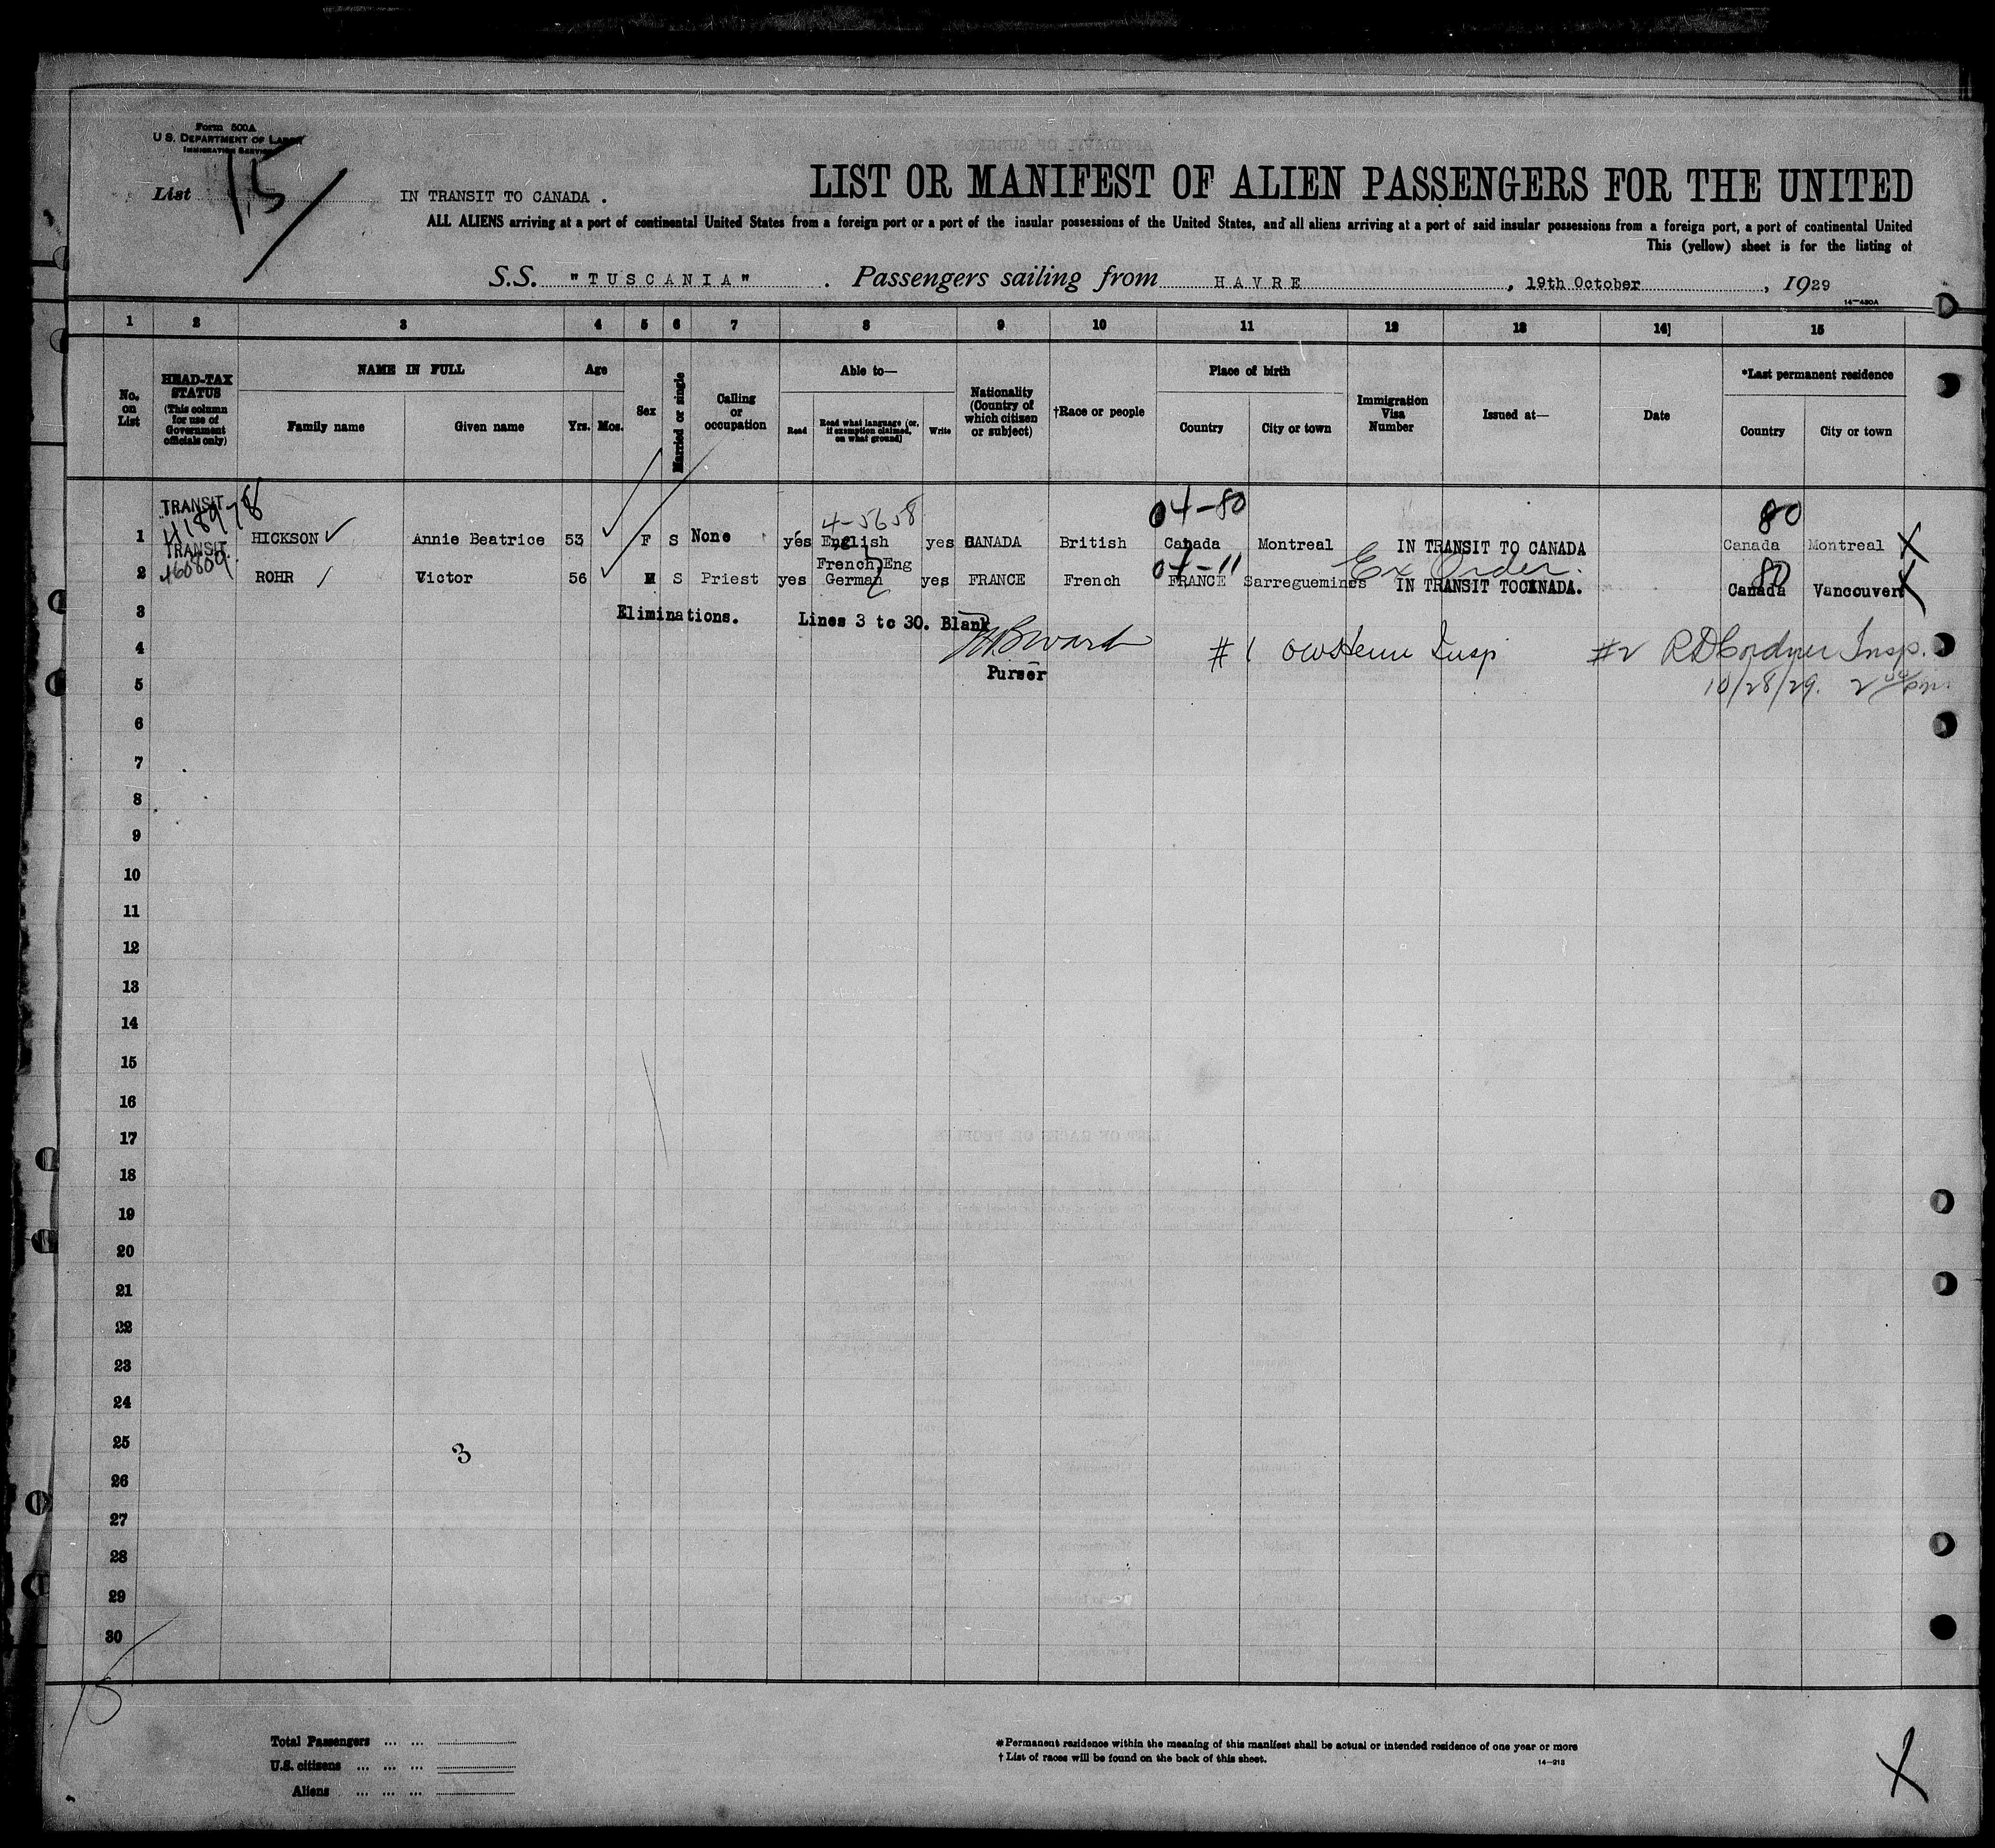 Form 500A
U. S. DEPARTMENT OF LABOR
IMMIGRATION SERVICE
List 15
IN TRANSIT TO CANADA .
LIST OR MANIFEST OF ALIEN PASSENGERS FOR THE UNITED
ALL ALIENS arriving at a port of continental United States from a foreign port or a port of the insular possessions of the United States, and all aliens arriving at a port of said insular possessions from a foreign port, a port of continental United
This (yellow) sheet is for the listing of
S.S. "TUSCANIA" . Passengers sailing from HAVRE , 19th October , 1929
14—480A
1 2 3 4 5 6 7 8 9 10 11 12 13 14] 15
No. on List
HEAD-TAX STATUS (This column for use of Government officials only)
NAME IN FULL
Family name
Given name
Age
Yrs. Mos.
Sex
Married or single
Calling or occupation
Able to—
Read
Read what language (or, if exemption claimed, on what ground)
Write
Nationality (Country of which citizen or subject)
†Race or people
Place of birth
Country
City or town
Immigration Visa Number
Issued at—
Date
*Last permanent residence
Country
City or town
TRANSIT 418978 4-5658 04-80 80
1 HICKSON ✓ Annie Beatrice 53 ✓ F S None yes English yes CANADA British Canada Montreal IN TRANSIT TO CANADA Canada Montreal X
TRANSIT 460809 French, Eng 04-11 Ex Order. 80
2 ROHR / Victor 56 ✓ M S Priest yes German yes FRANCE French FRANCE Sarreguemines IN TRANSIT TO CANADA. Canada Vancouver X
3 Eliminations. Lines 3 to 30. Blank
4 #1 Insp #2 Insp.
5 Purser 10/28/29. 2 pm.
6
7
8
9
10
11
12
13
14
15
16
17
18
19
20
21
22
23
24
25 3
26
27
28
29
30
Total Passengers ... ...
U.S. citizens ... ... ...
Aliens ... ... ...
*Permanent residence within the meaning of this manifest shall be actual or intended residence of one year or more
† List of races will be found on the back of this sheet.
14—213
X